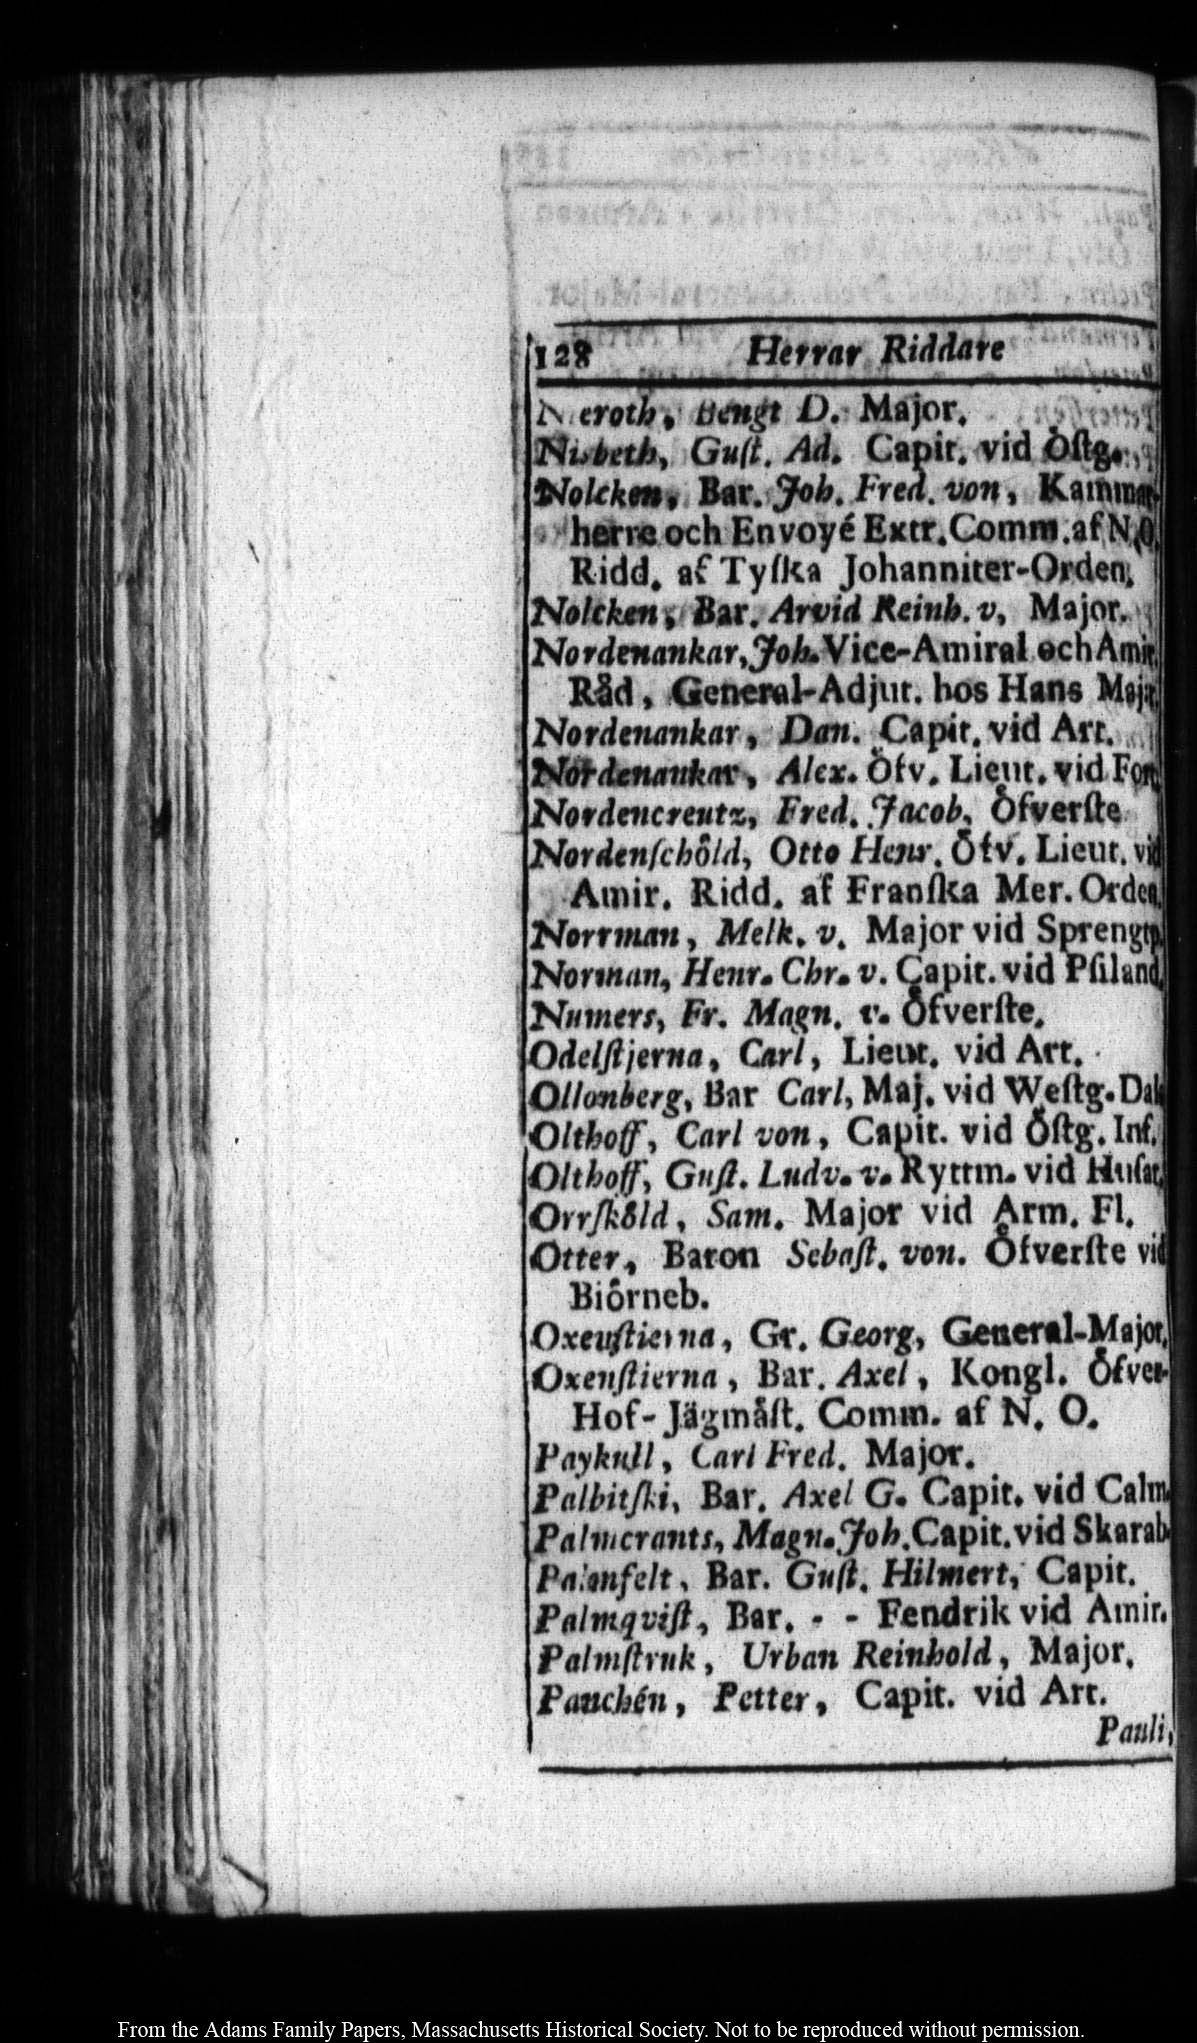 128 Herrar Riddare
Nieroth, Bengt D. Major.
Nisbeth, Guſt. Ad. Capit. vid Oͤſtg.
Nolcken, Bar. Joh. Fred. von, Kammar-
herre och Envoyé Extr. Comm. af N. O.
Ridd. af Tyſka Johanniter-Orden.
Nolcken, Bar. Arvid Reinh. v, Major.
Nordenankar, Joh. Vice-Amiral och Amir.
Råd, General-Adjut. hos Hans Maj:t.
Nordenankar, Dan. Capit. vid Art.
Nordenankar, Alex. Oͤfv. Lieut. vid Fort.
Nordencreutz, Fred. Jacob, Oͤfverſte
Nordenſchoͤld, Otto Henr. Oͤfv. Lieut. vid
Amir. Ridd. af Franſka Mer. Orden.
Norrman, Melk. v. Major vid Sprengtp.
Norman, Henr. Chr. v. Capit. vid Pſiland.
Numers, Fr. Magn. v. Oͤfverſte.
Odelſtjerna, Carl, Lieut. vid Art.
Ollonberg, Bar Carl, Maj. vid Weſtg. Dal.
Olthoff, Carl von, Capit. vid Oͤſtg. Inf.
Olthoff, Guſt. Ludv. v. Ryttm. vid Huſar.
Orrſkoͤld, Sam. Major vid Arm. Fl.
Otter, Baron Sebaſt. von. Oͤfverſte vid
Bioͤrneb.
Oxenſtierna, Gr. Georg, General-Major.
Oxenſtierna, Bar. Axel, Kongl. Oͤfver-
Hof-Jägmåſt. Comm. af N. O.
Paykull, Carl Fred. Major.
Palbitſki, Bar. Axel G. Capit. vid Calm.
Palmcrants, Magn. Joh. Capit. vid Skarab.
Palmfelt, Bar. Guſt. Hilmert, Capit.
Palmqviſt, Bar. - - Fendrik vid Amir.
Palmſtruk, Urban Reinhold, Major.
Pauchén, Petter, Capit. vid Art.
Pauli,
From the Adams Family Papers, Massachusetts Historical Society. Not to be reproduced without permission.